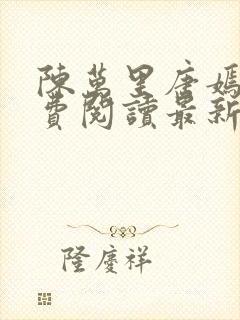 陳萬里唐嫣
費閱讀最新
隆慶祥